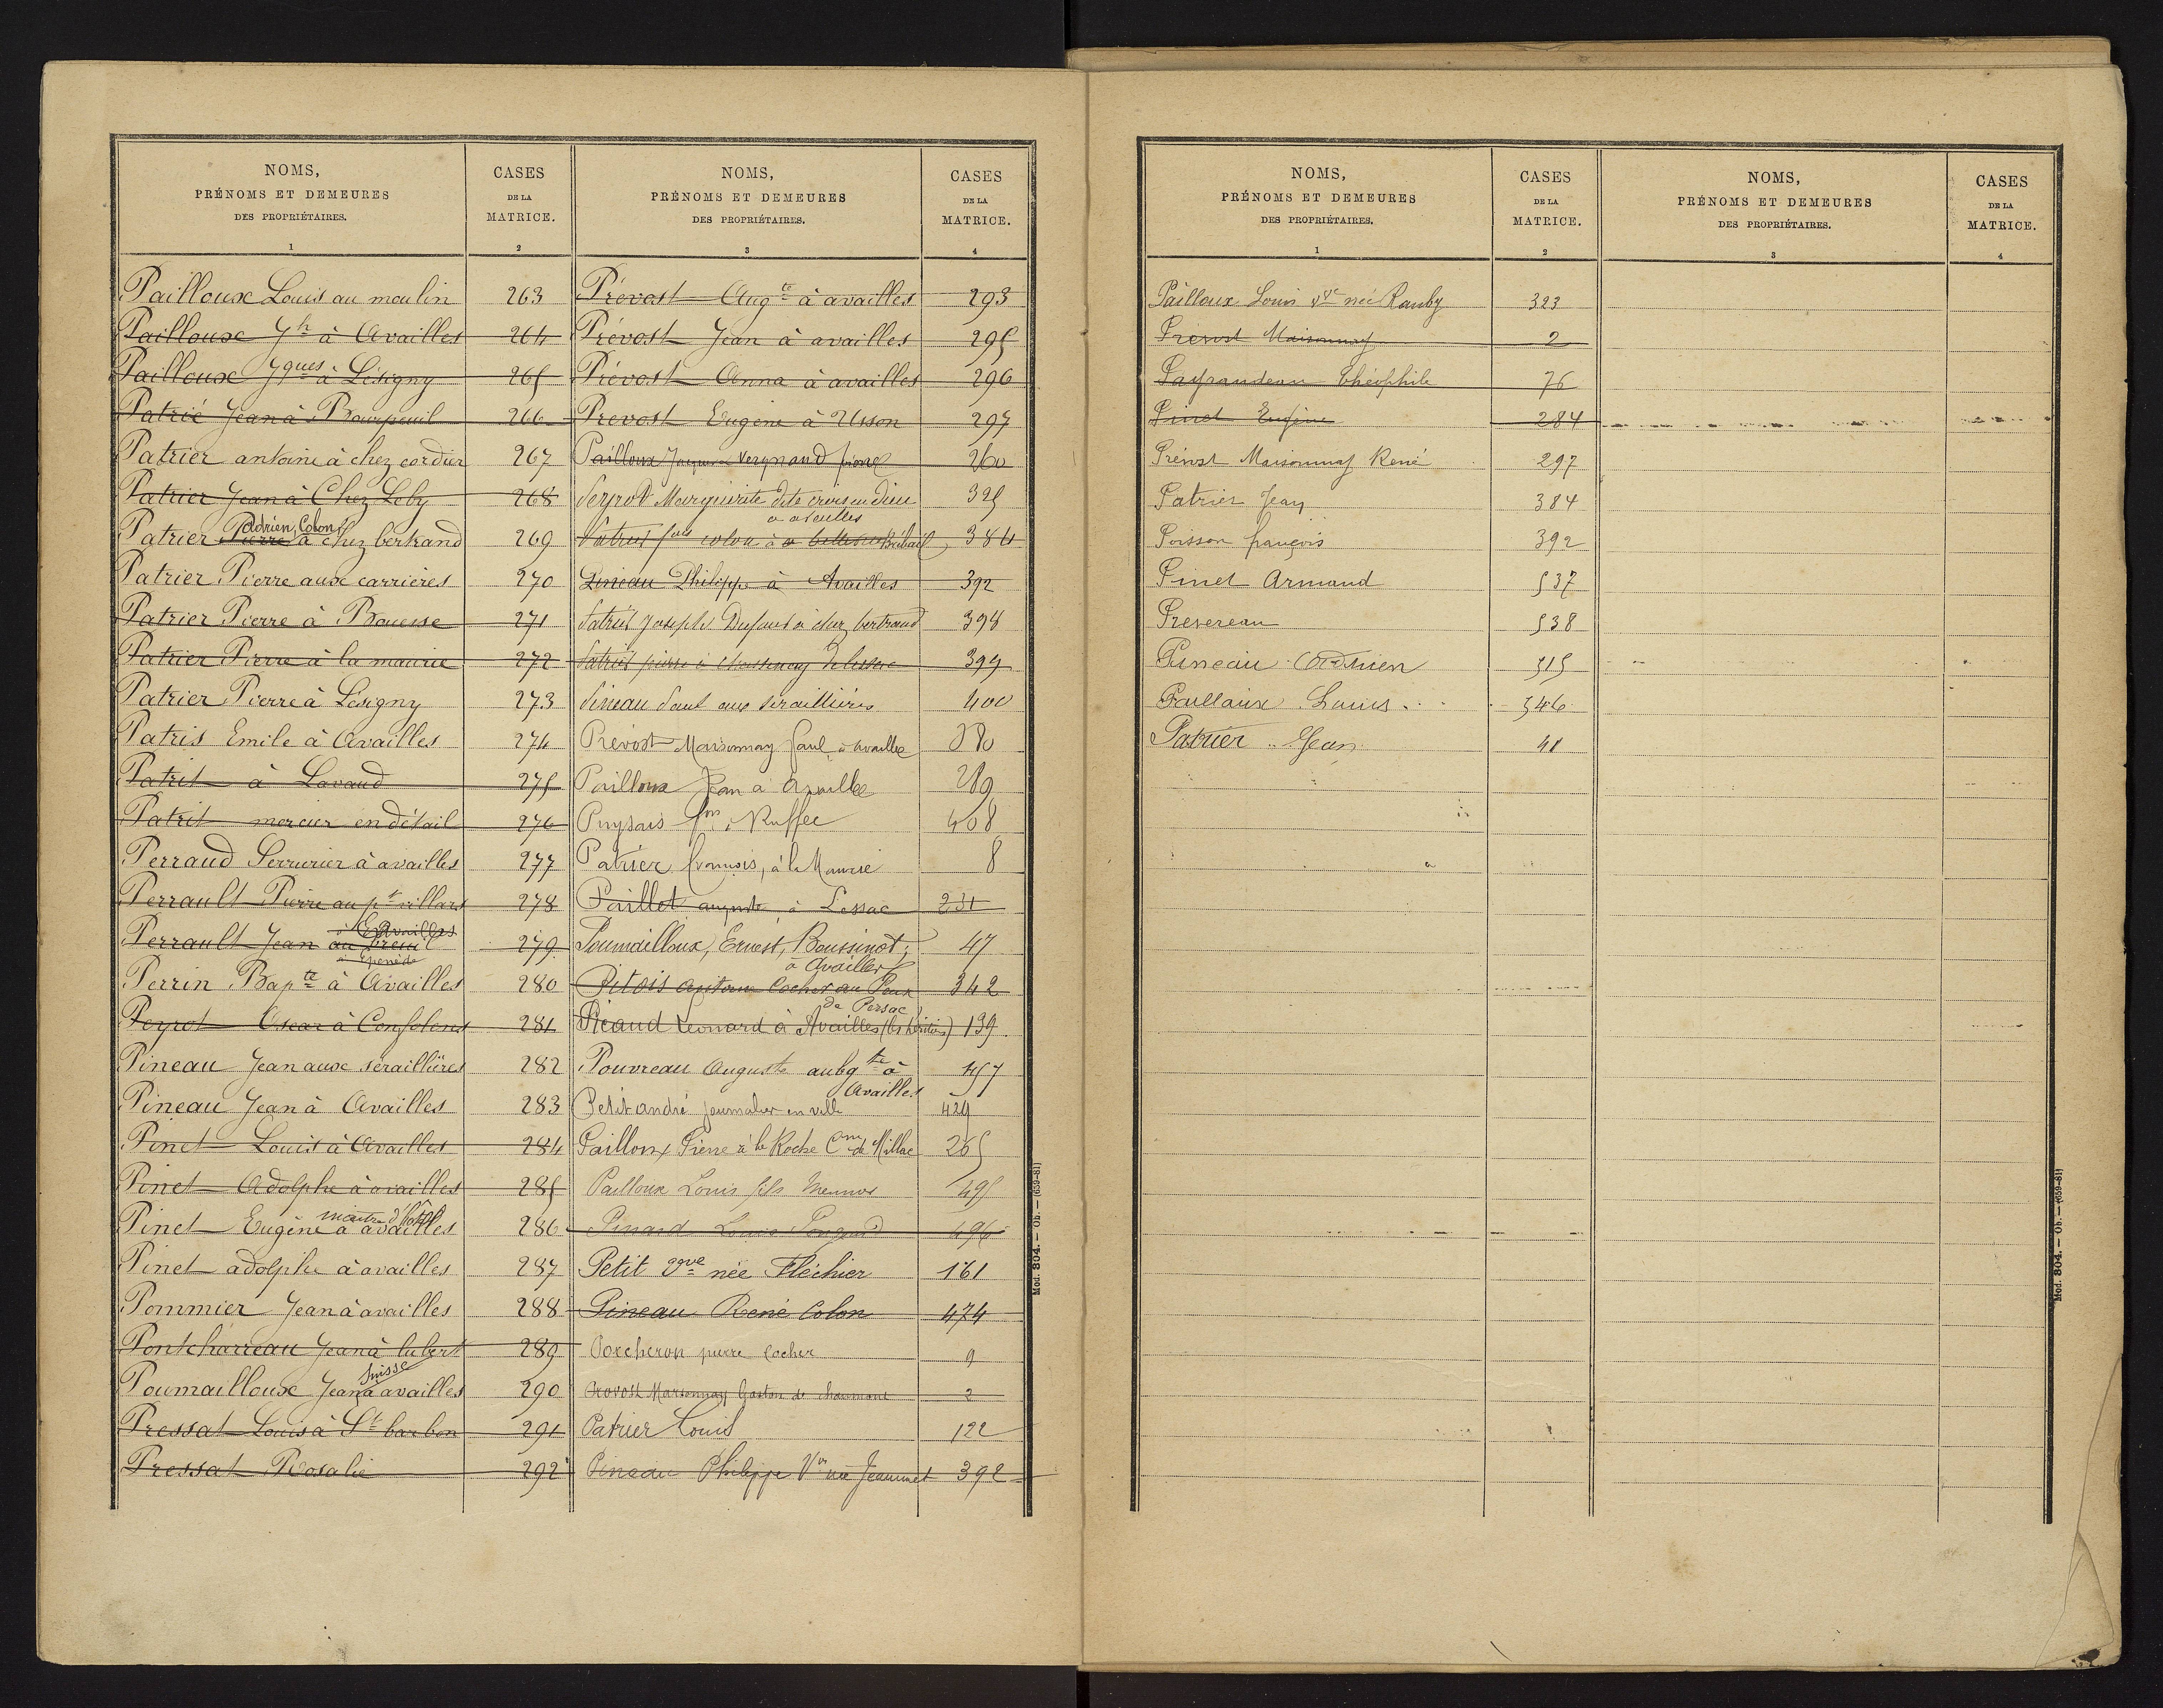 NOMS,
PRÉNOMS ET DEMEURES
DES PROPRIÉTAIRES.
1
CASES
DE LA
MATRICE.
2
Pailloux Louis au moulin 263
Pailloux Jh à Availles 264
Pailloux Jques à Lésigny 265
Patrié Jean à Bourpeuil 266
Patrier antoine à chez cordier 267
Patrier Jean à Chez Loby 268
adrien Colon
Patrier Pierre à chez bertrand 269
Patrier Pierre aux carrières 270
Patrier Pierre à Bouesse 271
Patrier Pierre à la maurie 272
Patrier Pierre à Lésigny 273
Patris Emile à Availles 274
Patrit à Lavaud 275
Patrit mercier en détail 276
Perraud Serrurier à availles 277
Perrault Pierre au pt villars 278
à Availles
Perrault Jean au breuil 279
à Epenède
Perrin Bapte à Availles 280
Peyrot Oscar à Confolens 281
Pineau Jean aux séraillières 282
Pineau Jean à Availles 283
Pinet Louis à Availles 284
Pinet Adolphe à availles 285
maitre d'hôtel
Pinet Eugène à availles 286
Pinet adolphe à availles 287
Pommier Jean à availles 288
Pontcharreau Jean à lubert 289
Suisse
Poumailloux Jean à availles 290
Pressat Louis à St barbon 291
Pressat Rosalie 292
NOMS,
PRÉNOMS ET DEMEURES
DES PROPRIÉTAIRES.
3
CASES
DE LA
MATRICE.
4
Prévost Augte à availles 293
Prévost Jean à availles 295
Prévost Anna à availles 296
Prevost Eugène à Usson 297
Pailloux Jacques Vergnaud 260
Peyrot Marguerite dite croix en dieu 325
a availles
fils colon à 384
Pineau Philippe à Availles 392
Patrier Joseph Dufour à chez bertrand 398
Patrier pierre à 399
Pineau Paul aux séraillières 400
Prévost Maisonnay Paul à availles 380
Pailloux Jean à Availles 289
Puysais fois à Ruffec 408
Patrier françois, à la Maurie 8
Paillet auguste, à Lessac 231
Poumailloux, Ernest, Boussinot, 47
à Availles
Pitois Antoine Cocher au Peux 342
de Persac
Picaud Léonard à Availles (les héritiers) 139
Pouvreau Auguste aubgte à 457
Availles
Petit andré journalier en ville 429
Pailloux Pierre à la Roche Cne de Millac 265
Pailloux Louis fils Meunier 495
Pinard Louis 496
Petit Vve née Fléchier 161
Pineau René Colon 474
Porcheron pierre Cocher 9
Prévost Maisonnay Gaston de chaumont 2
Patrier Louis 122
Pineau Philippe Vve née Jeammet 392
Mod. 804. — Ob. — (659-81)
NOMS,
PRÉNOMS ET DEMEURES
DES PROPRIÉTAIRES.
1
CASES
DE LA
MATRICE.
2
NOMS,
PRÉNOMS ET DEMEURES
DES PROPRIÉTAIRES.
3
CASES
DE LA
MATRICE.
4
Pailloux Louis Vve née Rauby 323
Prévost Maisonnay 2
Payraudeau Théophile 76
Pinet Eugène 284
Prévost Maisonnay René 297
Patrier Jean 384
Poisson françois 392
Pinet Armand 537
Prevereau 538
Pineau Adrien 515
Paillaux Louis 546
Patrier Jean 41
Mod. 804. — Ob. — (659-81)